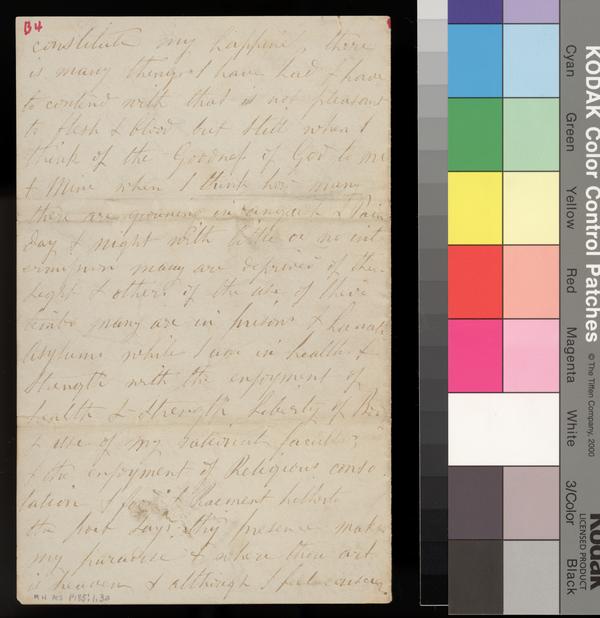 B4
constitute my happiness, there
is many things I have had & have
to contend with that is not pleasant
to flesh & blood but still when I
think of the Goodness of God to me
& Mine when I think how many
there are groaning in anguish & Pain
day & night with little or no int
ermission many are deprived of their
Sight & others of the use of their
limbs many are in prisons &
Asylums while I am in health &
Strength with the enjoyment of
health & Strength Liberty of
& use of my rational faculties
& the enjoyment of Religious conso
lation food & Raement
the poet says, thy presence makes
my paradise & where thou art
is heaven & although I feel
KODAK Color Control Patches
© The Tiffen Company, 2000
Kodak
LICENSED PRODUCT
Cyan
Green
Yellow
Red
Magenta
White
3/Color
Black